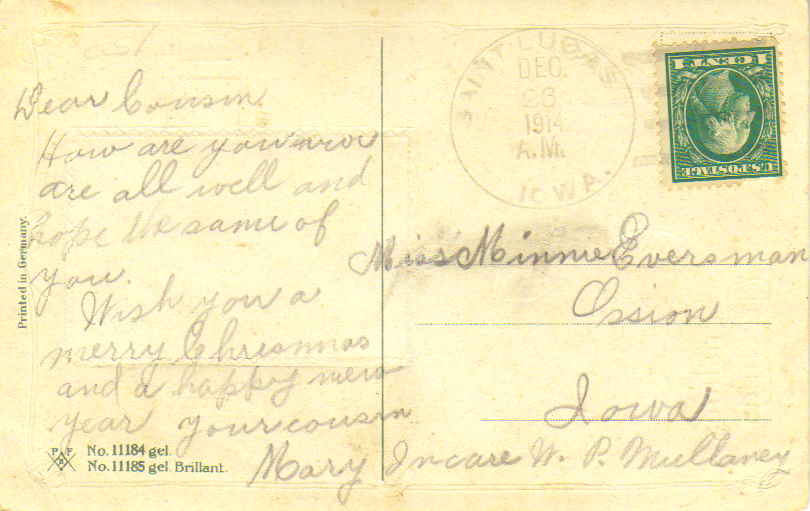 Dear Cousin
How are you now
are all well and
hope the same of
you.
Wish you a
merry Chrismas
and a happy new
year your cousin
Mary
SAINT LUCAS
DEC.
26
1914
A.M.
IOWA.
U.S. POSTAGE
Miss Minnie Eversman
Ossion
Iowa
Incare W. P. Mullaney
Printed in Germany.
P F B
No. 11184 gel.
No. 11185 gel. Brillant.